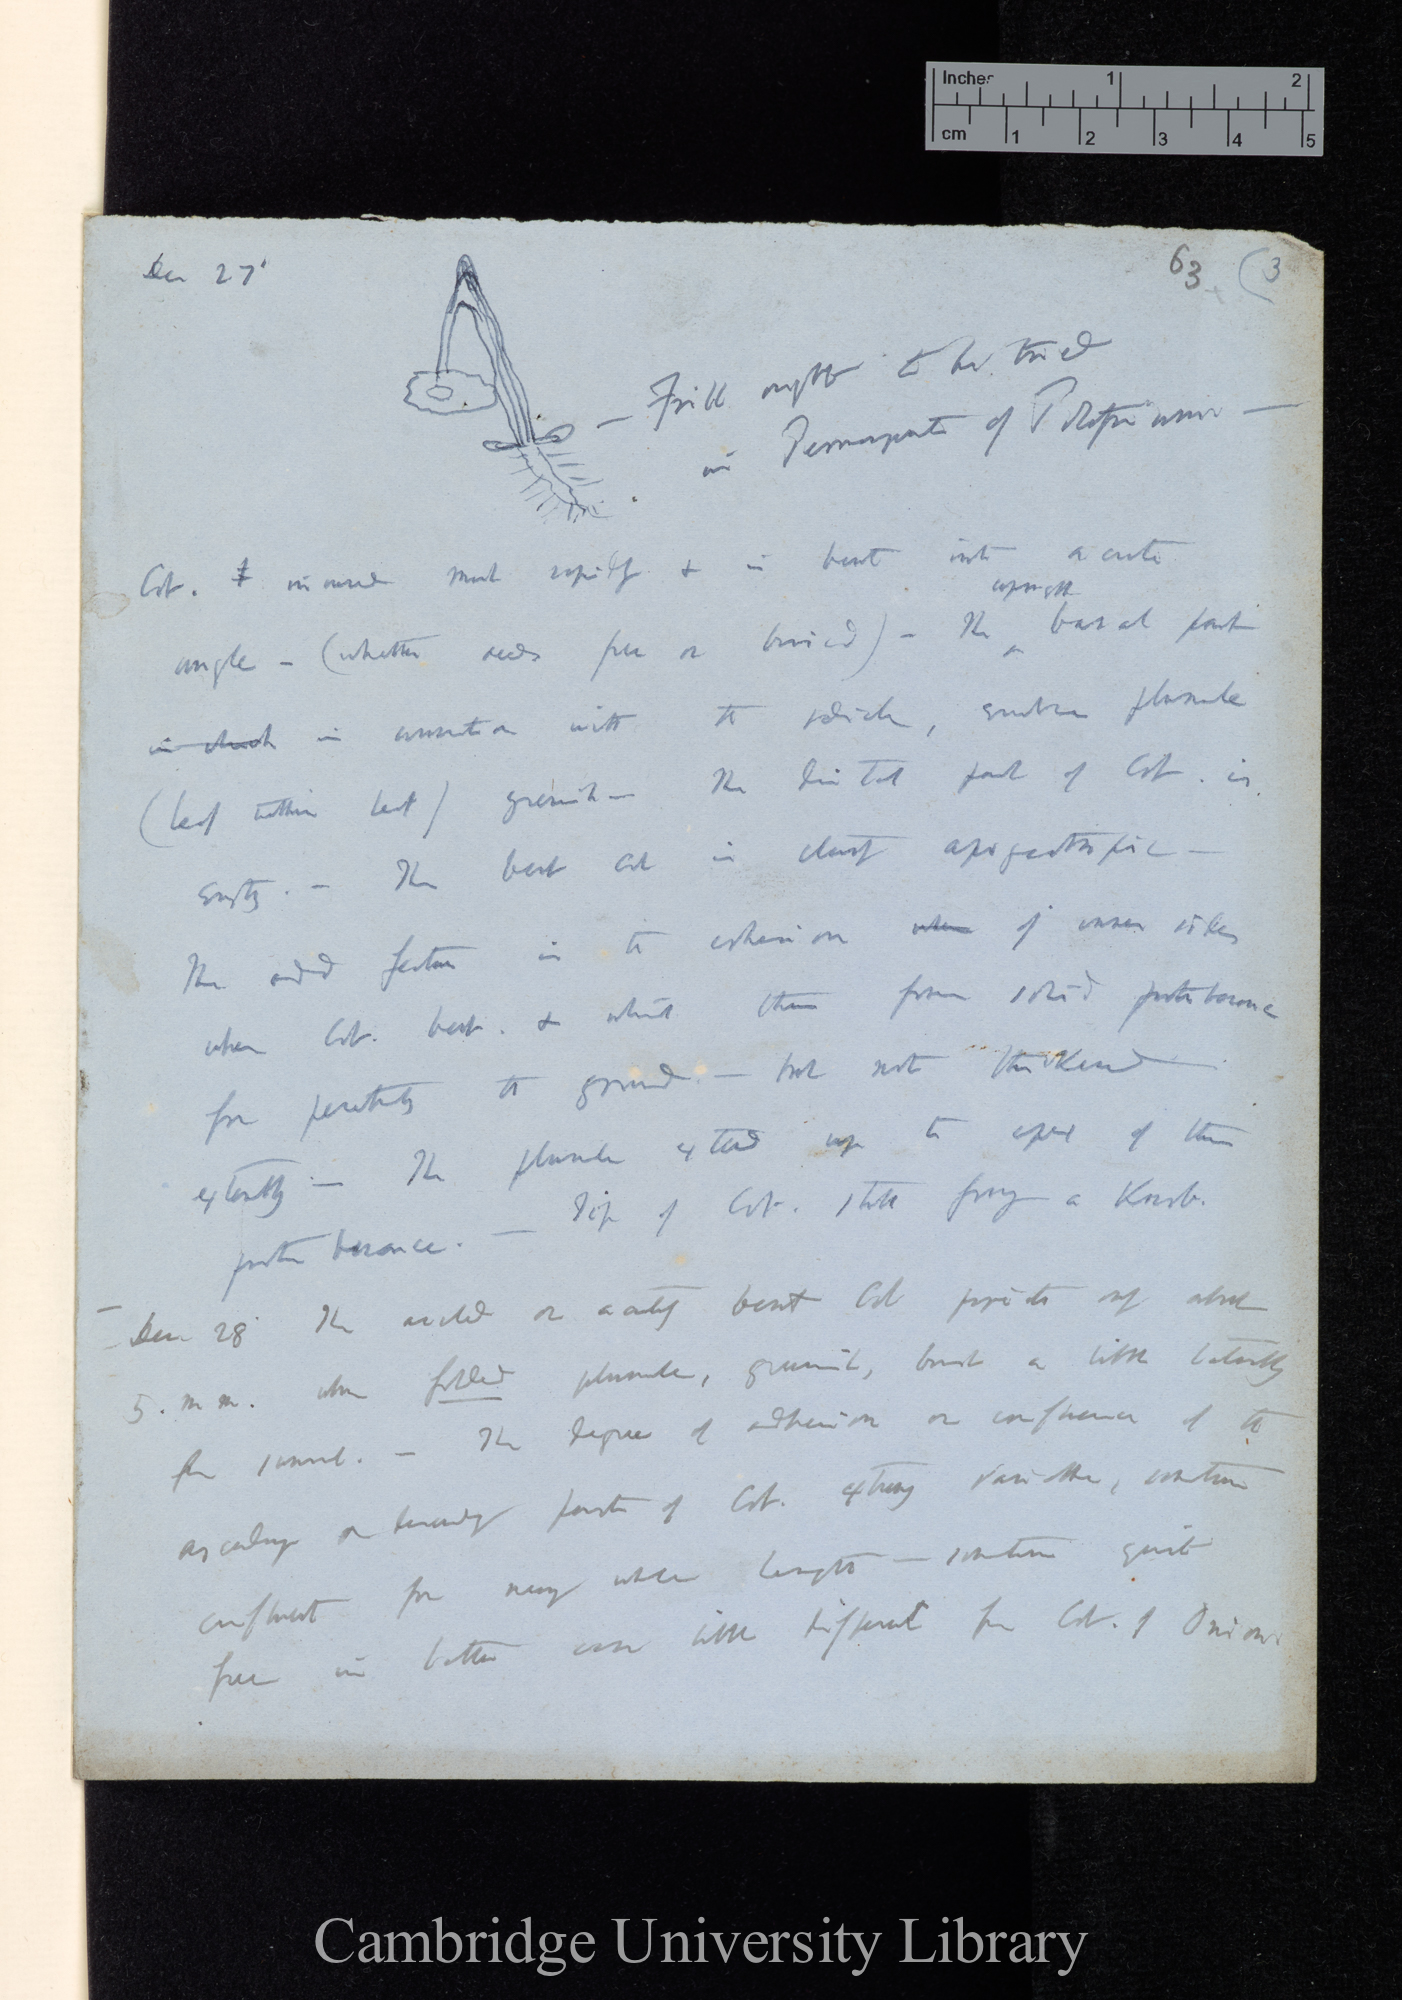 Inches 1 2
cm 1 2 3 4 5
Dec 27'
63 (3
— Frill ought to be tried
in Permanganate of Potassium —
Cot. increased most rapidly & is bent into acute
upright
angle — (whether seeds free or buried) — The basal part
in in connection with the radicle, surrounds plumule
(leaf within leaf) greenish — The distal part of Cot. is
empty. — The bent Cot is clearly apogeotropic —
The odd feature is the cohesion when of inner sides
when Cot. bent. & which then form solid protuberance
for penetrating the ground — but not thickened
externally — The plumule extend up to apex of this
protuberance. — Tip of Cot. still forms a Knob.
Dec. 28 The arched or acutely bent Cot projects up about
5. m m. when folded plumule, greenish, burst a little laterally
from summit. — The degree of adhesion or confluence of the
ascending or descending parts of Cot. extremely variable, sometimes
confluent for nearly whole length — sometimes quite
free in latter case little different from Cot. of Onions
Cambridge University Library